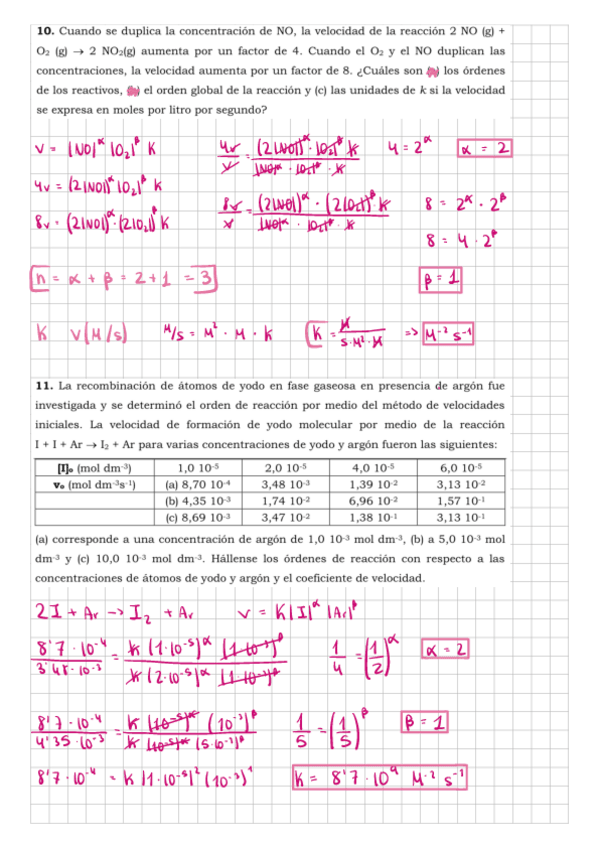 10. Cuando se duplica la concentración de NO, la velocidad de la reacción 2 NO (g) +
O₂ (g) → 2 NO₂(g) aumenta por un factor de 4. Cuando el O₂ y el NO duplican las
concentraciones, la velocidad aumenta por un factor de 8. ¿Cuáles son (a) los órdenes
de los reactivos, (b) el orden global de la reacción y (c) las unidades de k si la velocidad
se expresa en moles por litro por segundo?
v = |NO|^α |O₂|^β K   4v/v = (2|NO|)^α · |O₂|^β · K / |NO|^α · |O₂|^β · K   4 = 2^α   α = 2
4v = (2|NO|)^α |O₂|^β K
8v = (2|NO|)^α · (2|O₂|)^β K   8v/v = (2|NO|)^α · (2|O₂|)^β · K / |NO|^α · |O₂|^β · K   8 = 2^α · 2^β
8 = 4 · 2^β
n = α + β = 2 + 1 = 3   β = 1
K   v(M/s)   M/s = M² · M · K   K = M / s · M² · M => M⁻² s⁻¹
11. La recombinación de átomos de yodo en fase gaseosa en presencia de argón fue
investigada y se determinó el orden de reacción por medio del método de velocidades
iniciales. La velocidad de formación de yodo molecular por medio de la reacción
I + I + Ar → I₂ + Ar para varias concentraciones de yodo y argón fueron las siguientes:
[I]₀ (mol dm⁻³)   1,0 10⁻⁵   2,0 10⁻⁵   4,0 10⁻⁵   6,0 10⁻⁵
v₀ (mol dm⁻³s⁻¹)   (a) 8,70 10⁻⁴   3,48 10⁻³   1,39 10⁻²   3,13 10⁻²
(b) 4,35 10⁻³   1,74 10⁻²   6,96 10⁻²   1,57 10⁻¹
(c) 8,69 10⁻³   3,47 10⁻²   1,38 10⁻¹   3,13 10⁻¹
(a) corresponde a una concentración de argón de 1,0 10⁻³ mol dm⁻³, (b) a 5,0 10⁻³ mol
dm⁻³ y (c) 10,0 10⁻³ mol dm⁻³. Hállense los órdenes de reacción con respecto a las
concentraciones de átomos de yodo y argón y el coeficiente de velocidad.
2I + Ar -> I₂ + Ar   v = K|I|^α |Ar|^β
8'7 · 10⁻⁴ / 3'48 · 10⁻³ = K (1·10⁻⁵)^α (1·10⁻³)^β / K (2·10⁻⁵)^α (1·10⁻³)^β   1/4 = (1/2)^α   α = 2
8'7 · 10⁻⁴ / 4'35 · 10⁻³ = K (10⁻⁵)^α (10⁻³)^β / K (10⁻⁵)^α (5·10⁻³)^β   1/5 = (1/5)^β   β = 1
8'7 · 10⁻⁴ = K |1·10⁻⁵|² (10⁻³)¹   K = 8'7 · 10⁹ M⁻² s⁻¹